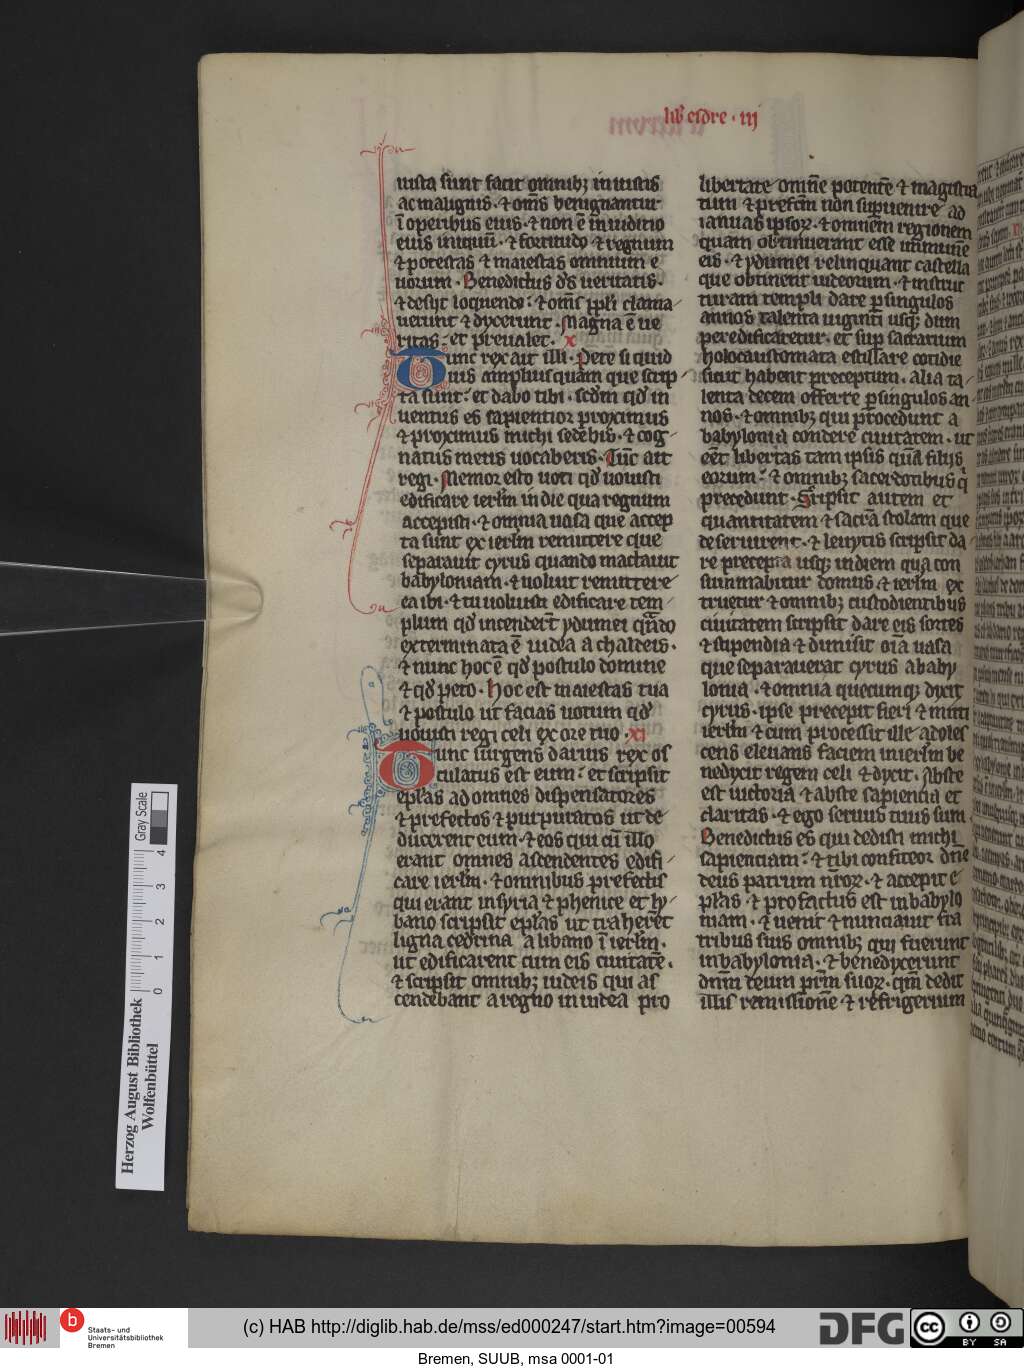 lib̄ esdre · iij
iusta sunt facit omnibꝫ iniustis
ac malignis · ⁊ om̄s benignantur
ī operibus eius · ⁊ non ē in iuditio
eius iniquū · ⁊ fortitudo ⁊ regnum
⁊ potestas ⁊ maiestas omnium e
uorum · Benedictus d̄s ueritatis ·
⁊ desijt loquendo : ⁊ om̄s pp̄li clama
uerunt ⁊ dixcerunt · Magna ē ue
ritas : et preualet · x
Tunc rex ait illi · Pete si quid
uis amplius quam que scrip
ta sunt : et dabo tibi · scd̄m qd̄ in
uentus es sapientior proximus
⁊ proximus michi sedebis · ⁊ cog
natus meus uocaberis · Tūc ait
regi · Memor esto uoti qd̄ uouisti
edificare ierlm̄ in die qua regnum
accepisti · ⁊ omnia uasa que accep
ta sunt ex ierlm̄ remittere que
separauit cyrus quando mactauit
babyloniam · ⁊ uoluit remittere
ea ibi · ⁊ tu uoluisti edificare tem
plum qd̄ incender̄t ydumei qn̄do
exterminata ē iudea a chaldeis ·
⁊ nunc hoc ē qd̄ postulo domine
⁊ qd̄ peto · Hoc est maiestas tua
⁊ postulo ut facias uotum qd̄
uouisti regi celi ex ore tuo · xi
Tunc surgens darius rex os
culatus est eum : et scripsit
ep̄las ad omnes dispensatores
⁊ prefectos ⁊ purpuratos ut de
ducerent eum · ⁊ eos qui cū illo
erant omnes ascendentes edifi
care ierlm̄ · ⁊ omnibus prefectis
qui erant in syria ⁊ phenice et ly
bano scripsit ep̄las ut traher̄et
ligna cedrina a libano ī ierlm̄ ·
ut edificarent cum eis ciuitatē ·
⁊ scripsit omnibꝫ iudeis qui as
cendebant a regno in iudea pro
libertate omn̄e potentē ⁊ magistra
tum ⁊ prefcm̄ non supuenire ad
ianuas ipsoꝝ · ⁊ omnem regionem
quam obtinuerant esse inmunē
eis · ⁊ ydumei relinquant castella
que obtinent iudeorum · ⁊ instruc
turam templi dare p singulos
annos talenta uiginti usqꝫ dum
peredificaretur · et sup sacrarium
holocaustomata estillare cotidie
sicut habent preceptum · alia ta
lenta decem offerre p singulos an
nos · ⁊ omnibꝫ qui procedunt a
babylonia condere ciuitatem · ut
eēt libertas tam ipsis quā filijs
eorum : ⁊ omnibꝫ sacerdotibus q̄
precedunt · Scripsit autem et
quantitatem ⁊ sacrā stolam que
deseruirent · ⁊ leuytis scripsit da
re precepta usqꝫ in diem qua con
summabitur domus ⁊ ierlm̄ ex
truetur ⁊ omnibꝫ custodientibus
ciuitatem scripsit dare eis sortes
⁊ stipendia ⁊ dimisit oīa uasa
que separauerat cyrus a baby
lonia · ⁊ omnia quecumqꝫ dixit
cyrus · ipse precepit fieri ⁊ mitti
ierlm̄ ⁊ cum processit ille adoles
cens eleuans faciem in ierlm̄ be
nedixit regem celi ⁊ dixit · Abs te
est uictoria ⁊ abs te sapiencia et
claritas · ⁊ ego seruus tuus sum
Benedictus es qui dedisti michi
sapienciam : ⁊ tibi confiteor dn̄e
deus patrum nr̄oꝝ · ⁊ accepit e
p̄las ⁊ profactus est in babylo
niam · ⁊ uenit ⁊ nunciauit fra
tribus suis omnibꝫ qui fuerunt
in babylonia · ⁊ benedixcerunt
dn̄m deum pr̄m suoꝝ · qm̄ dedit
illis remissionē ⁊ refrigerium
Gray Scale
0 1 2 3 4
Herzog August Bibliothek
Wolfenbüttel
b Staats- und
Universitätsbibliothek
Bremen
(c) HAB http://diglib.hab.de/mss/ed000247/start.htm?image=00594
DFG
cc BY SA
Bremen, SUUB, msa 0001-01